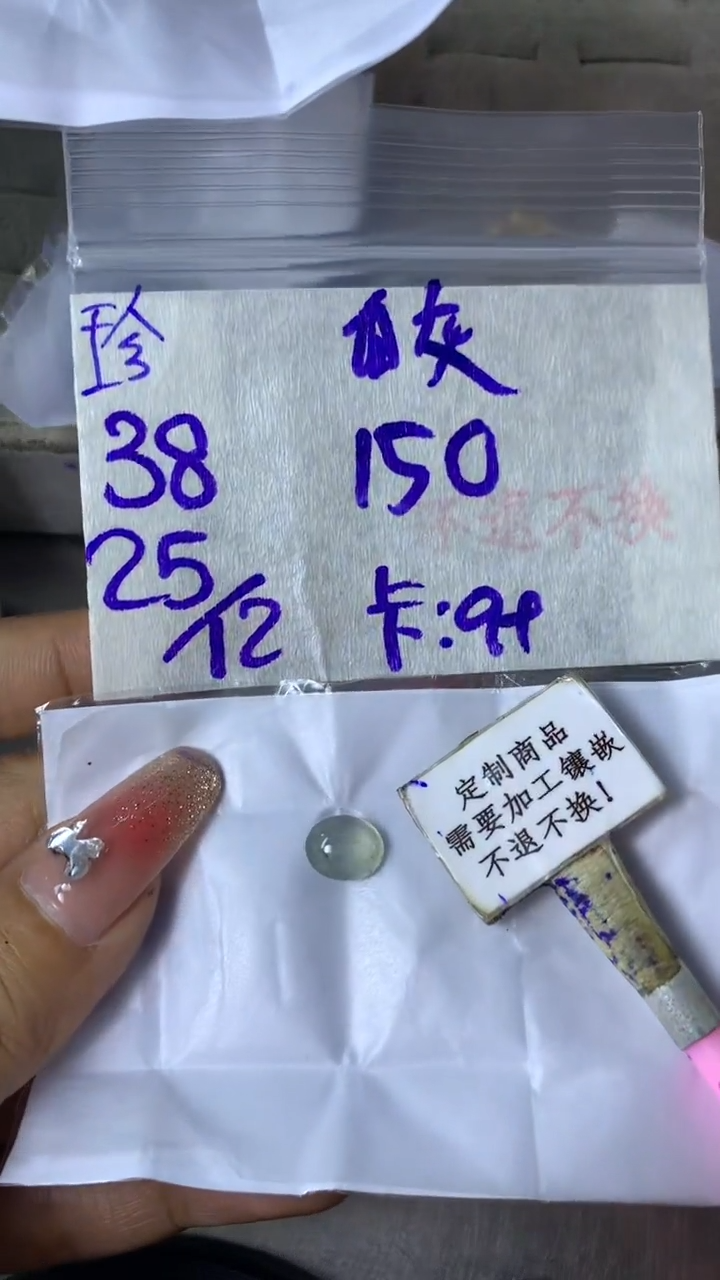 珍
灰
38
150
不退不换
25/12
卡:
定制商品
需要加工镶嵌
不退不换!